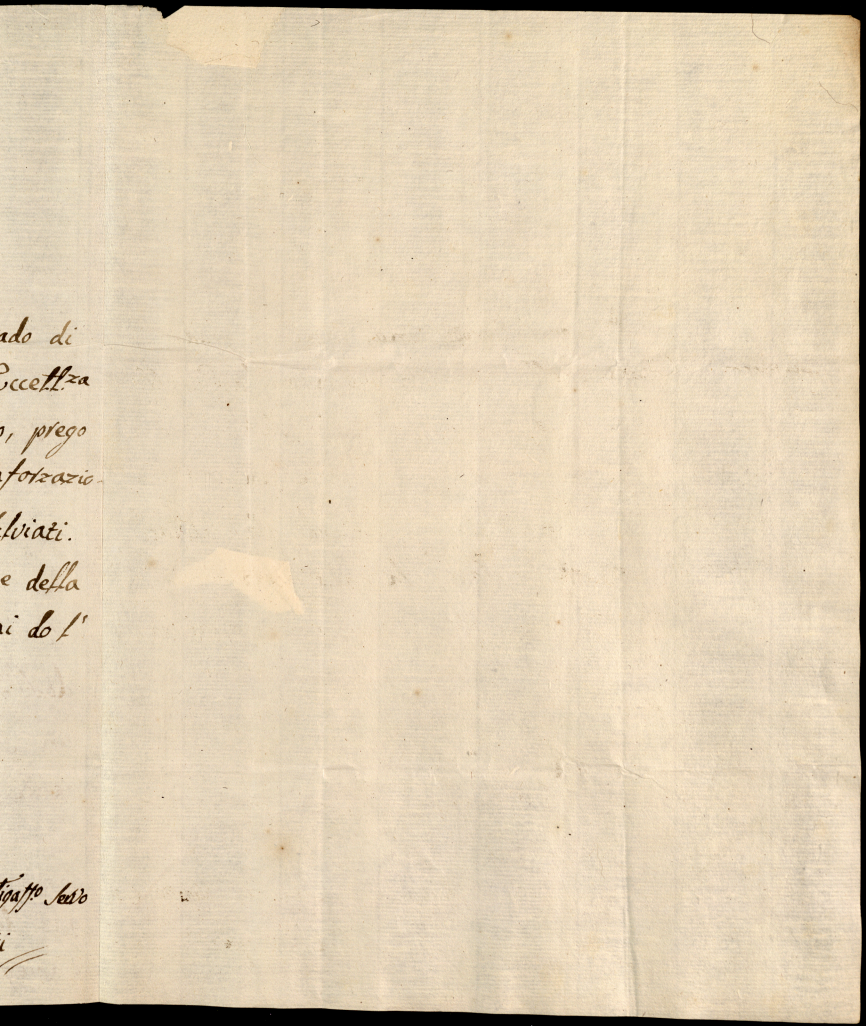 ado di
Eccell.za
o, prego
nforzazio-
lviati.
e della
ni do l'
igatt.o Servo
i